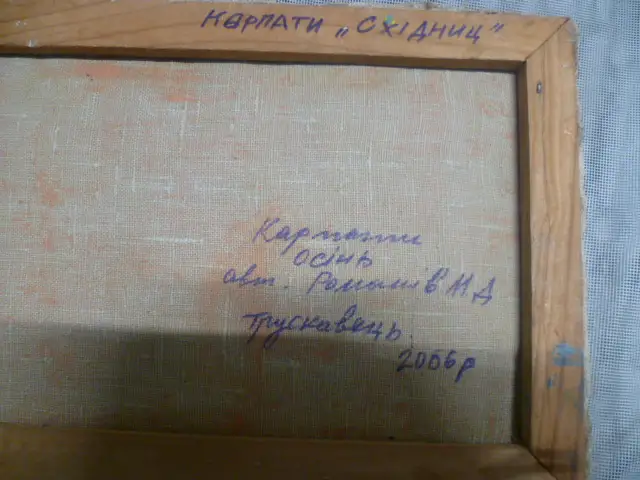 КАРПАТИ „СХІДНИЦ"
Карпати
осінь
авт. Романів М Д
Трускавець.
2006р